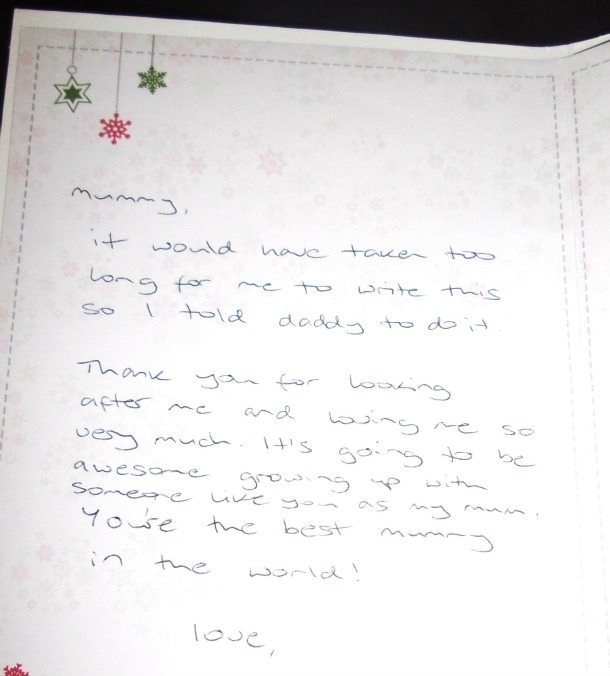 Mummy,
it would have taken too
long for me to write this
so I told daddy to do it.
Thank you for looking
after me and loving me so
very much. It's going to be
awesome growing up with
someone like you as my mum.
You're the best mummy
in the world!
love,